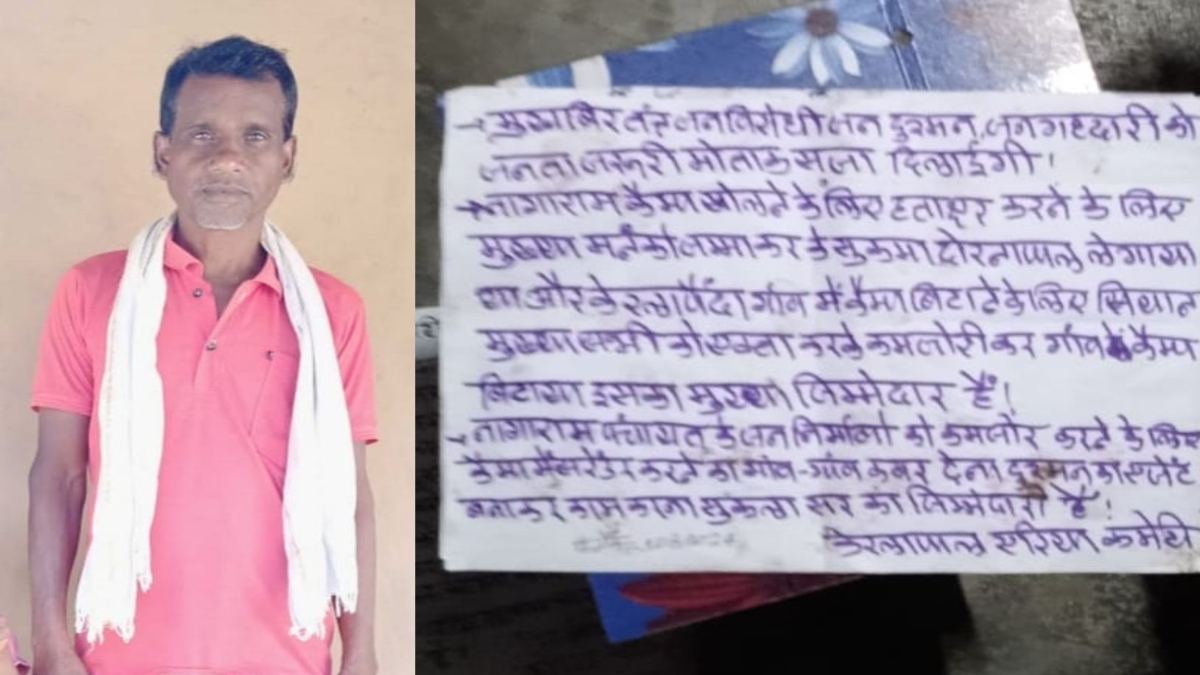 → मुखाबिर तंत्र जन विरोधी जन दुश्मन, जन गद्दारी को
जनता जरूरी मौताक सजा दिलाईगी।
→ नागाराम कैम्प खोलने के लिए हताक्षर करने के लिए
मुख्या को जमा कर के सुकमा दोरनापाल ले गाया
था और केरलापेंदा गांव में कैम्प बिटाने के लिए
मुख्या सभी को एकता करके कमजोरी कर गांव में कैम्प
बिटाया इसका मुख्या जिम्मेदार हैं।
→ नागाराम पंचायत के जन निर्माणो को कमजोर करने के लिए
कैम्प में सरेंडर करने का गांव-गांव कबर देना दुश्मन का एजेंट
बनाकर काम करना सुकला सर का जिम्मेदारी हैं।
केरलापाल एरिया कमेटी